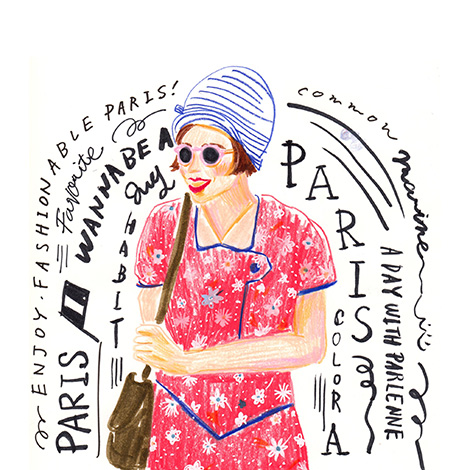 ENJOY·FASHIONABLE PARIS!
Favorite
PARIS
WANNA BE A
HABIT
common
marine
PARIS
COLORA
A DAY WITH PARIENNE